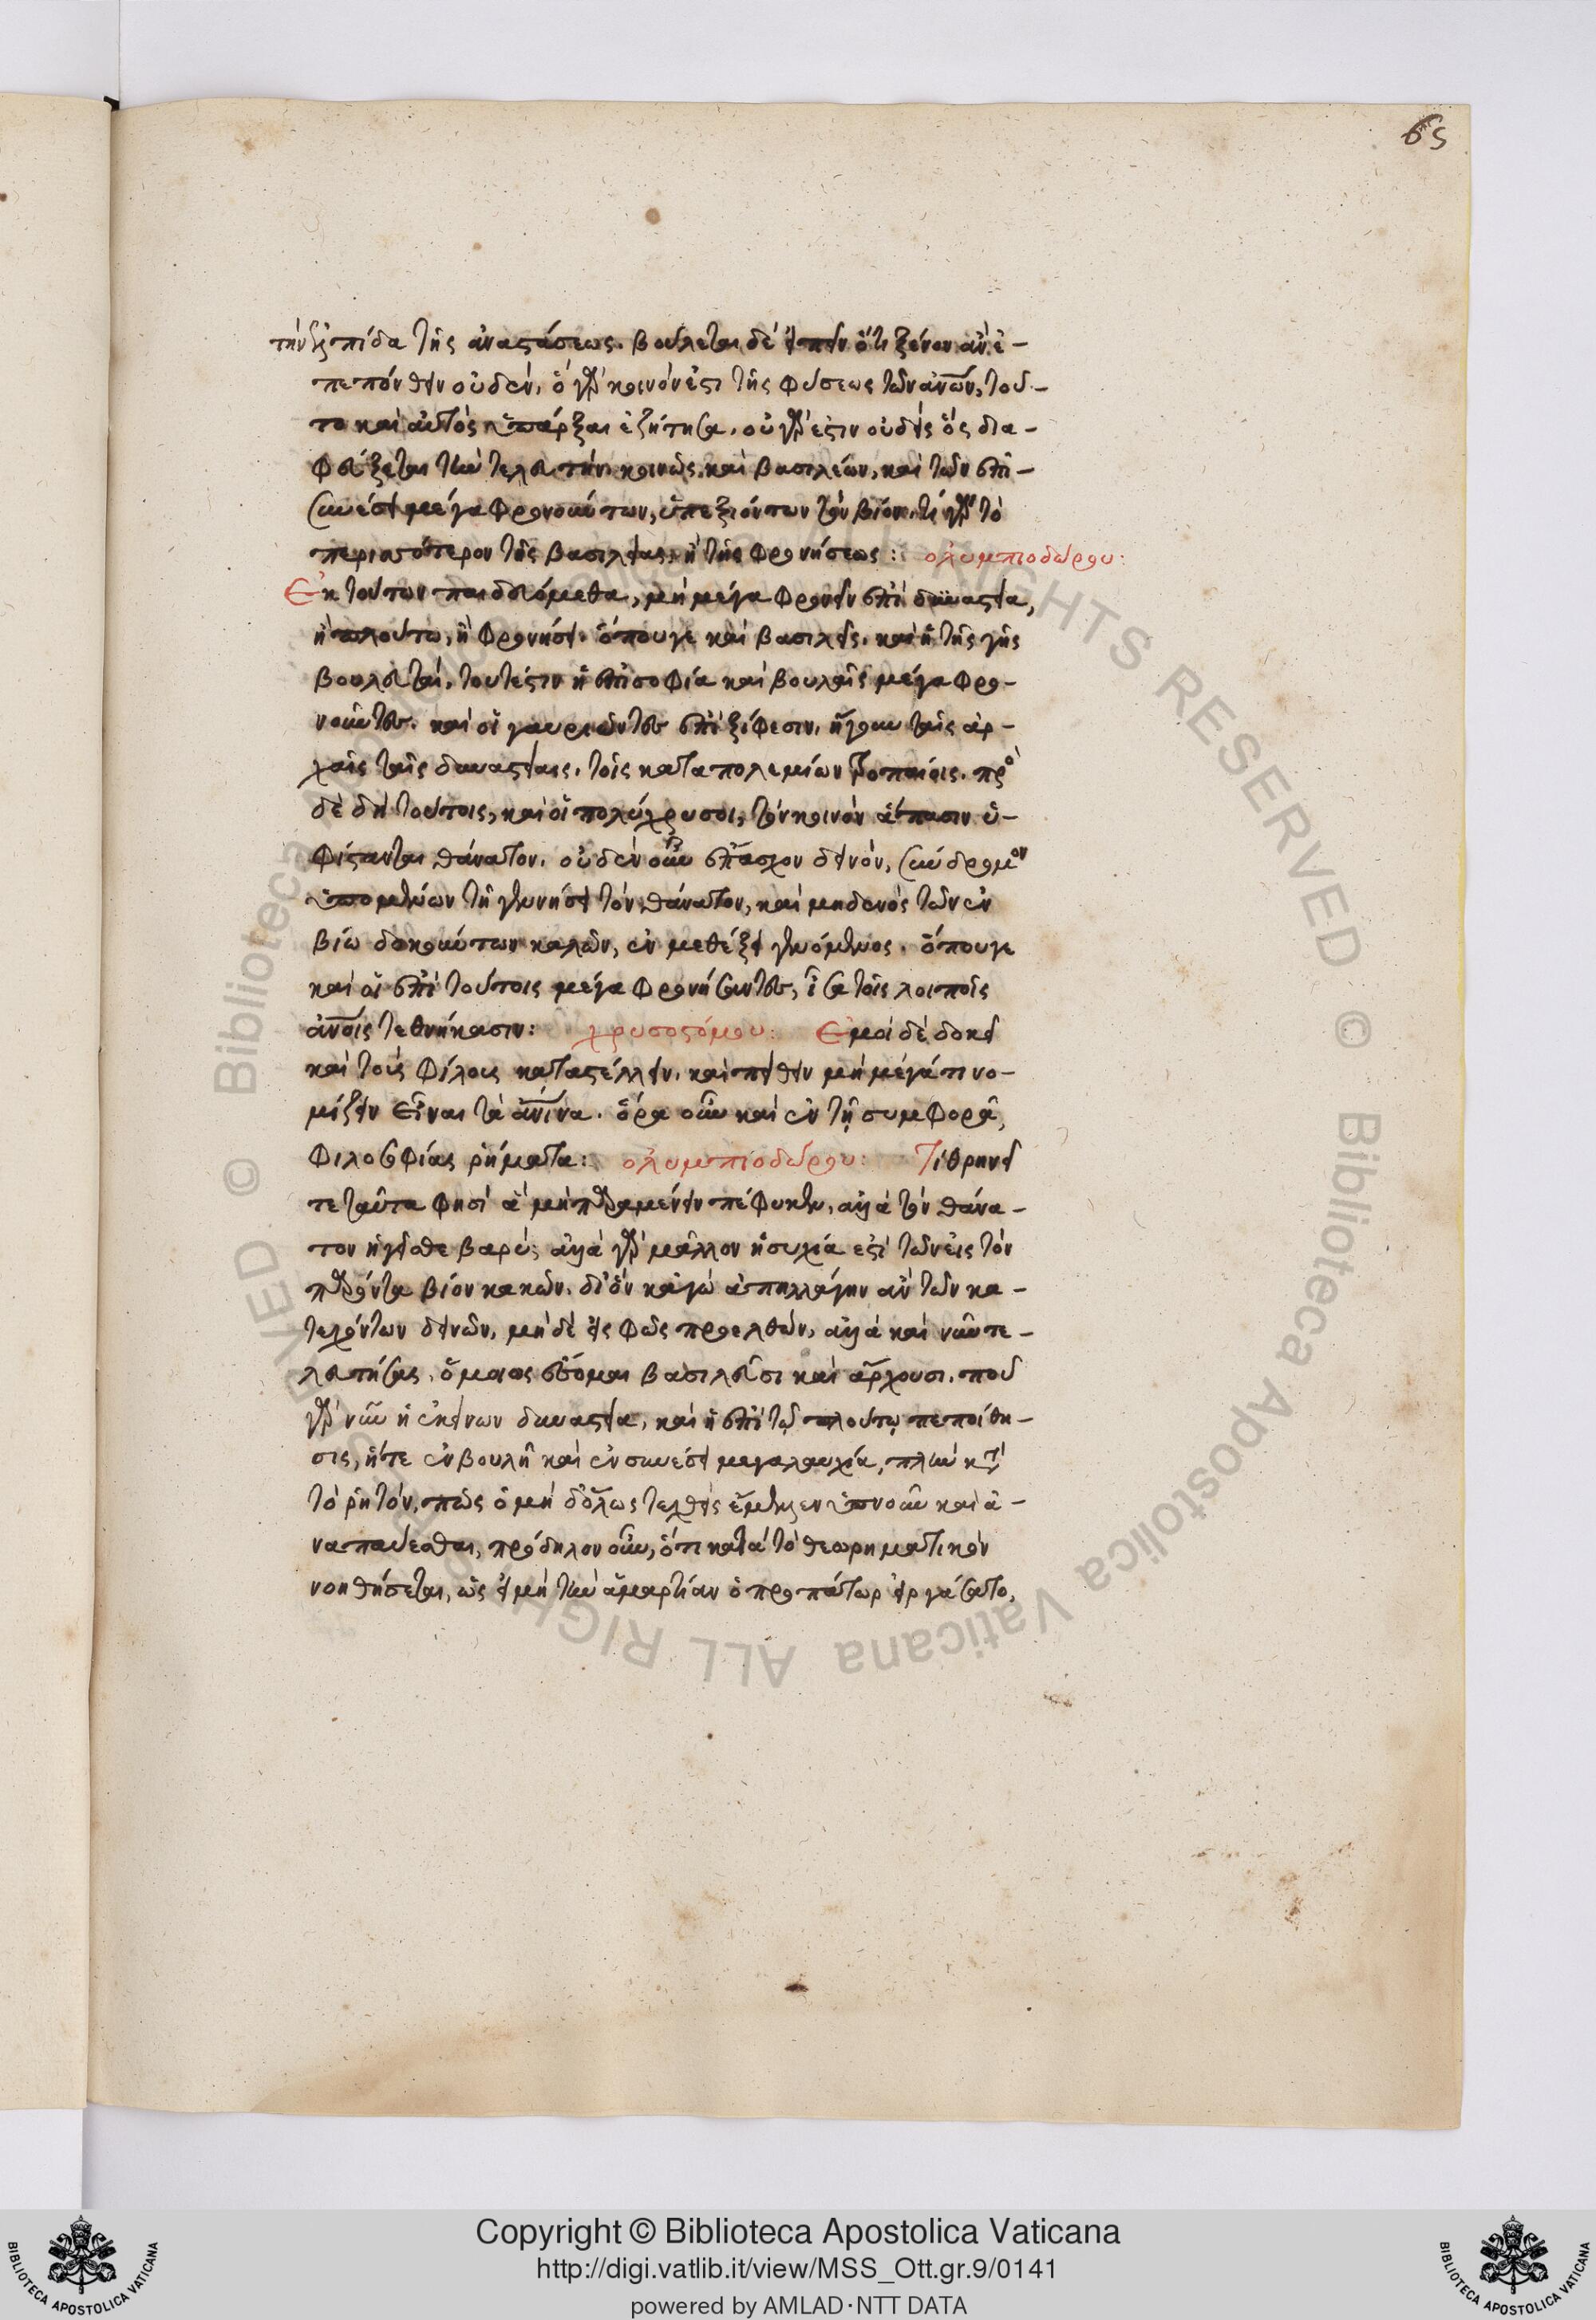 65
τὴν ἐλπίδα τῆς ἀναστάσεως. βούλεται δὲ εἰπεῖν ὅτι ξένον ἂν ἐ-
πεπόνθειν οὐδέν, ὃ γὰρ κοινόν ἐστι τῆς φύσεως τῶν ἀνῶν, τοῦ-
το καὶ αὐτὸς ὑπάρξαι ἐζήτησα. οὐ γὰρ ἐστιν οὐδεὶς ὃς δια-
φεύξεται τὴν τελευτὴν κοινῶς. καὶ βασιλέων, καὶ τῶν ἐπὶ
συνέσει μέγα φρονούντων, ὑπεξιόντων τὸν βίον. τί γὰρ τὸ
περισσότερον τῆς βασιλείας, ἢ τῆς φρονήσεως: ὀλυμπιοδώρου:
Ἐκ τούτων παιδευόμεθα, μὴ μέγα φρονεῖν ἐπὶ δυναστεία,
ἢ πλούτω, ἢ φρονήσει. ὅπουγε καὶ βασιλεῖς. καὶ οἱ τῆς γῆς
βουλευταί, τουτέστιν οἱ ἐπὶ σοφία καὶ βουλαῖς μέγα φρο-
νοῦντες. καὶ οἱ γαυριῶντες ἐπὶ ξίφεσιν. ἤγουν ταῖς ἀρ-
χαῖς ταῖς δυναστείαις. τοῖς κατα πολεμίων τροπαίοις. πρὸ
δὲ δὴ τούτοις, καὶ οἱ πολύχρυσοι, τὸν κοινὸν ἅπασιν ὑ-
φίστανται θάνατον. οὐδὲν οὖν ἔπασχον δεινόν, σύνδρομον
ὑπομένων τῆ γεννήσει τὸν θάνατον, καὶ μηδενὸς τῶν ἐν
βίω δοκούντων καλῶν, ἐν μεθέξει γενόμενος. ὅπουγε
καὶ οἱ ἐπὶ τούτοις μέγα φρονήσαντες, ἴσα τοῖς λοιποῖς
ἀνοις τεθνήκασιν: χρυσοστόμου: Ἐμοὶ δὲ δοκεῖ
καὶ τοὺς φίλους καταστέλλειν. καὶ πείθειν μὴ μέγα τι νο-
μίζειν εἶναι τὰ ἀνινα. ὅρα οὖν καὶ ἐν τῇ συμφορᾶ,
φιλοσοφίας ῥήματα: ὀλυμπιοδώρου: Τί θρηνεῖ
τε ταῦτα φησὶ ἃ μὴ παραμένειν πέφυκεν, ἀλλὰ τὸν θάνα-
τον ἡγεῖσθε βαρύ; ἀλλὰ γὰρ μᾶλλον ἡσυχία ἐστὶ τῶν εἰς τὸν
παρόντα βίον κακῶν. δι' ὃν καγὼ ἀπηλλάγην ἂν τῶν κα-
τεχόντων δεινῶν, μηδὲ εἰς φῶς προελθών, ἀλλὰ καὶ νῦν τε-
λευτήσας. ὅμοιος ἔσομαι βασιλεῦσι καὶ ἄρχουσι. ποῦ
γὰρ νῦν ἡ ἐκείνων δυναστεία, καὶ ἡ ἐπὶ τῷ πλούτῳ πεποίθη-
σις, ἥτε ἐν βουλῆ καὶ ἐν συνέσει μεγαλαυχία, πλὴν κατὰ
τὸ ῥητόν, πῶς ὁ μὴ δ' ὅλως τεχθεὶς ἔμελλεν ὑπνοῦν καὶ ἀ-
ναπαύεσθαι, πρόδηλον οὖν, ὅτι κατὰ τὸ θεωρηματικὸν
νοηθήσεται, ὡς εἰ μὴ τὴν ἁμαρτίαν ὁ προπάτωρ εἰργάσατο,
Copyright © Biblioteca Apostolica Vaticana
http://digi.vatlib.it/view/MSS_Ott.gr.9/0141
powered by AMLAD·NTT DATA
BIBLIOTECA APOSTOLICA VATICANA
BIBLIOTECA APOSTOLICA VATICANA
© Biblioteca Apostolica Vaticana ALL RIGHTS RESERVED